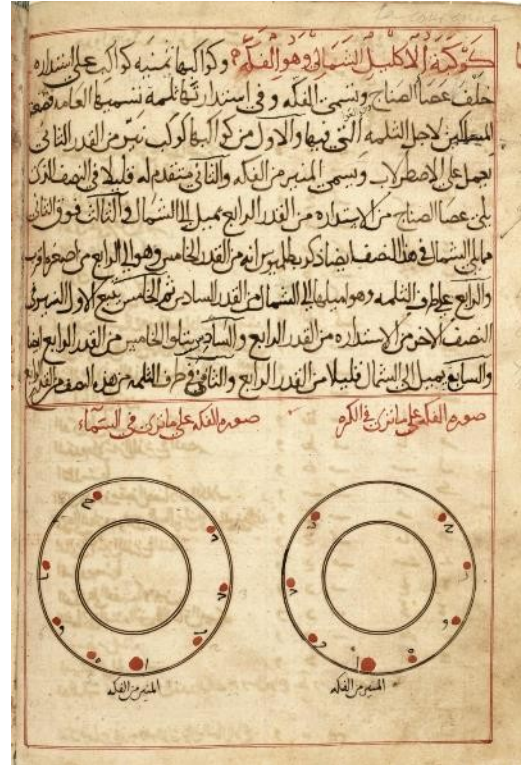 La couronne
كوكبة الاكليل الشمالى وهو الفكه وكواكبها ثمنيه كواكب على استداره
خلف عصا الصناج وتسمى الفكه وفى استدارتها ثلمه تسميها العامه قصعه
المساكين لاجل الثلمه التى فيها والاول من كواكبها كوكب نير من القدر الثانى
يعمل على الاصطرلاب ويسمى المنير من الفكه والثانى متقدم له قليلا فى النصف الذى
يلى عصا الصناج من الاستداره من القدر الرابع يميل الى الشمال والثالث فوق الثانى
مما يلى الشمال فى هذا النصف ايضا ذكر بطلميوس انه من القدر الخامس وهو الى الرابع من اصغر اقرب
والرابع على طرف الثلمه وهو اميلها الى الشمال من القدر السادس ثم الخامس يتبع الاول النير فى
النصف الاخر من الاستداره من القدر الرابع والسادس يتلو الخامس من القدر الرابع ايضا
والسابع يميل الى الشمال قليلا من القدر الرابع والثامن فى طرف الثلمه من هذه النصف من القدر الرابع
صوره الفكه على ما ترى فى الكره
صوره الفكه على ما ترى فى السماء
المنير من الفكه
المنير من الفكه